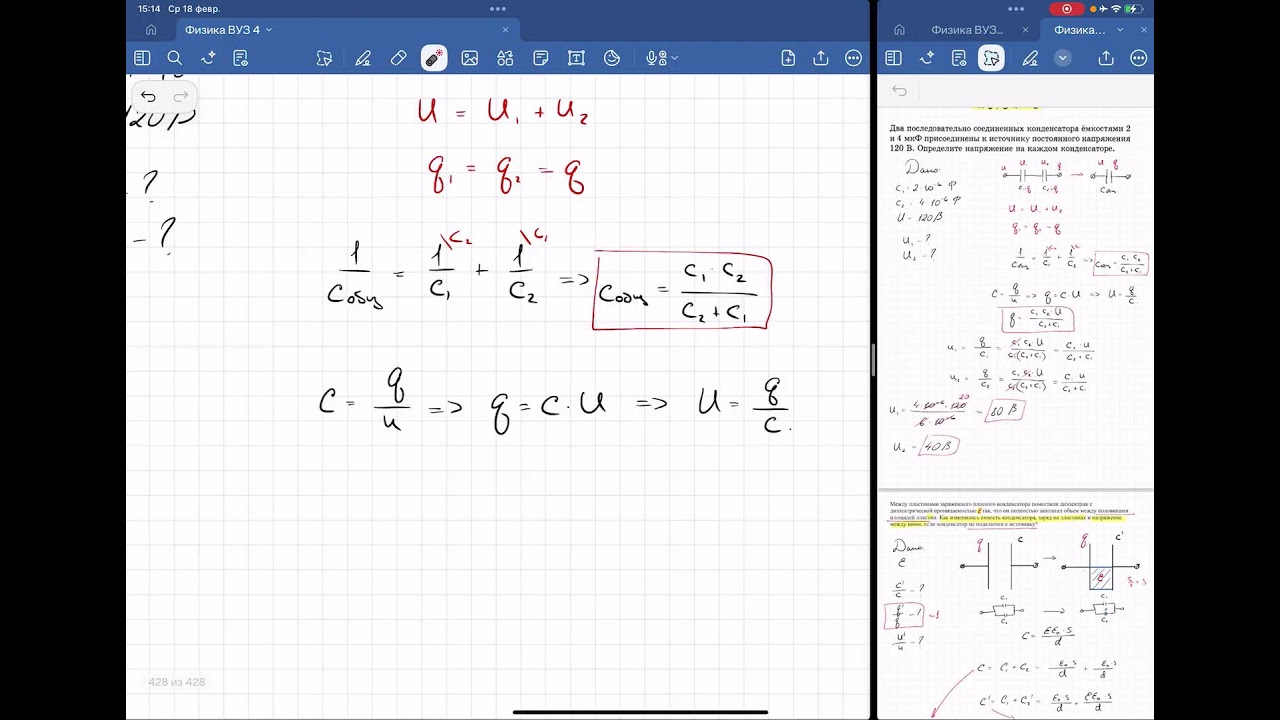 15:14 Ср 18 февр.
Физика ВУЗ 4
U = U₁ + U₂
q₁ = q₂ = q
- ?
- ?
1/Cобщ = 1\C₂/C₁ + 1\C₁/C₂ => Cобщ = C₁ · C₂/C₂ + C₁
C = q/u => q = C · U => U = q/C.
428 из 428
Физика ВУЗ...
Физика...
Два последовательно соединенных конденсатора ёмкостями 2
и 4 мкФ присоединены к источнику постоянного напряжения
120 В. Определите напряжение на каждом конденсаторе.
Дано:
C₁ = 2·10⁻⁶ Ф
C₂ = 4·10⁻⁶ Ф
U = 120 В
U₁ - ?
U₂ - ?
U = U₁ + U₂
q₁ = q₂ = q
C = q/u => q = C·U => U = q/C
q = C₁ C₂ U/C₂+C₁
80 В
U₂ = 40 В
Между пластинами заряженного плоского конденсатора поместили диэлектрик с
диэлектрической проницаемостью ε так, что он полностью заполнил объем между половинами
площадей пластин. Как изменились емкость конденсатора, заряд на пластинах и напряжение
между ними, если конденсатор не подключен к источнику?
Дано:
ε
q C
q C'
C'/C - ?
U'/U - ?
C = εε₀·S/d
C = C₁ + C₂ = ε₀·S/d + ε₀·S/d
C' = C₁ + C₂' = ε₀·S/d + εε₀·S/d